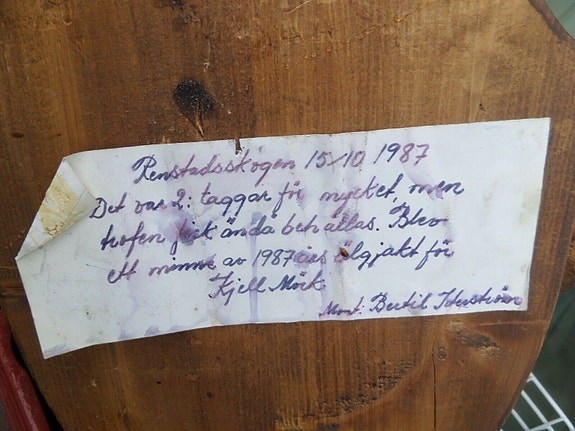 Renstadsskogen 15/10 1987
Det var 2: taggar för mycket, men
trofen fick ända behållas. Blev
ett minne av 1987 års älgjakt för
Kjell Mörk
Mont: Bertil